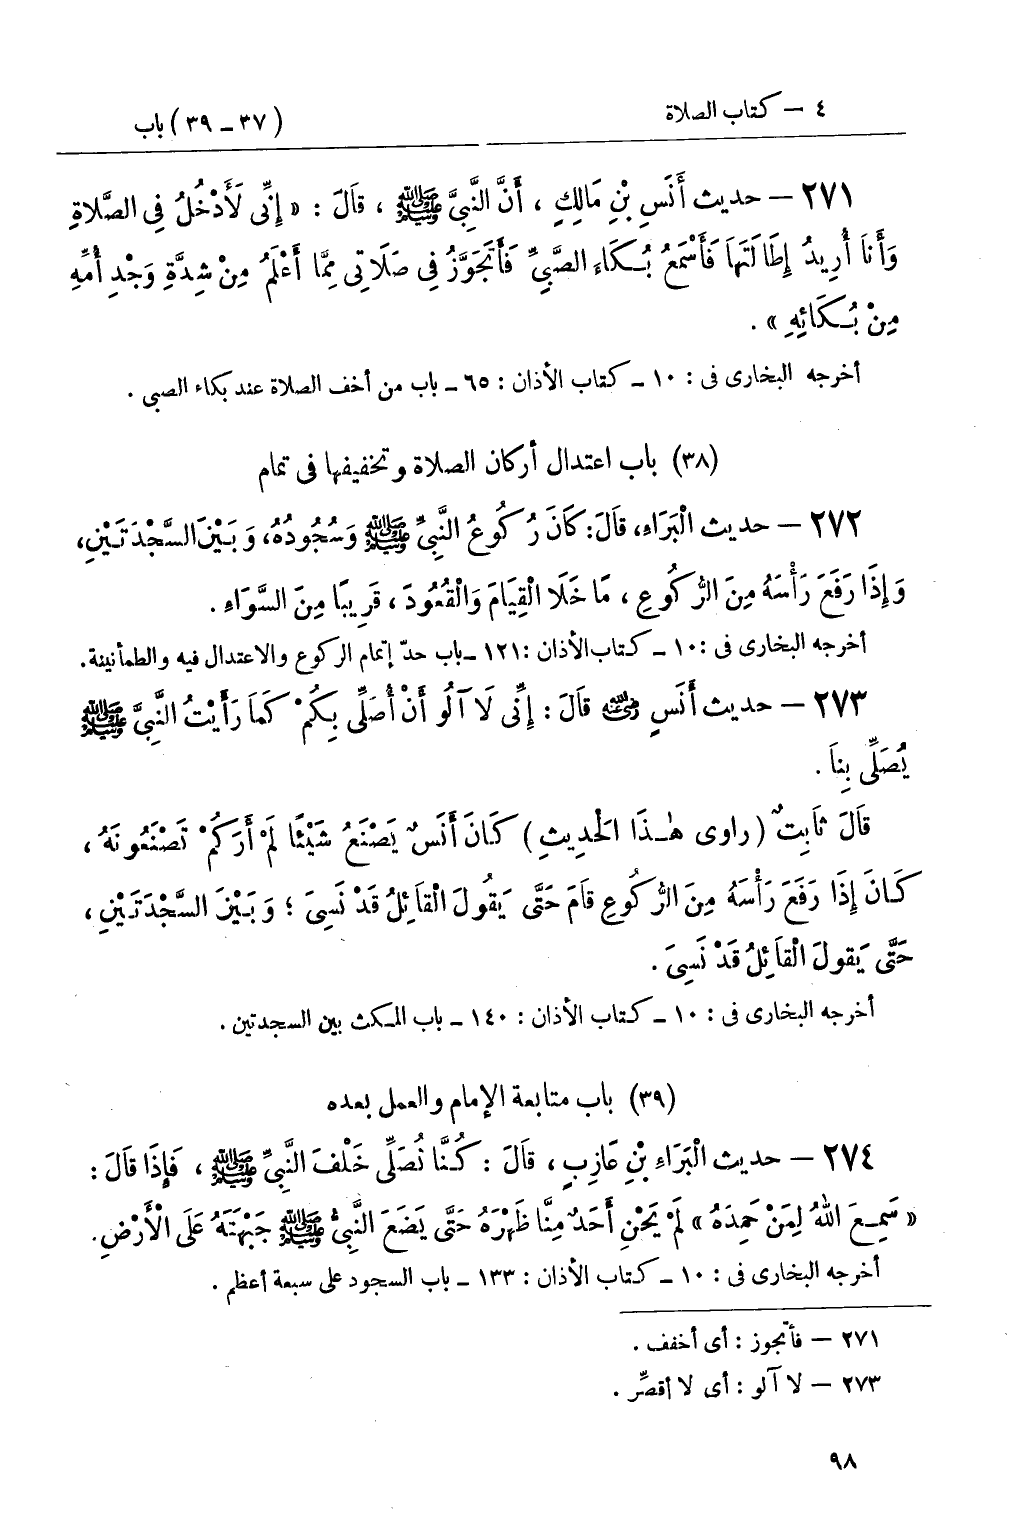 ٤ – كتاب الصلاة
(٣٧ – ٣٩) باب
٢٧١ – حديث أَنَسِ بْنِ مَالِكٍ ، أَنَّ النَّبِيَّ ﷺ ، قَالَ : « إِنِّى لَأَدْخُلُ فِى الصَّلَاةِ
وَأَنَا أُرِيدُ إِطَالَتَهَا فَأَسْمَعُ بُكَاءَ الصَّبِيِّ فَأَتَجَوَّزُ فِى صَلَاتِى مِمَّا أَعْلَمُ مِنْ شِدَّةِ وَجْدِ أُمِّهِ
مِنْ بُكَائِهِ » .
أخرجه البخارى فى : ١٠ – كتاب الأذان : ٦٥ – باب من أخف الصلاة عند بكاء الصبى .
(٣٨) باب اعتدال أركان الصلاة وتخفيفها فى تمام
٢٧٢ – حديث الْبَرَاءِ، قَالَ: كَانَ رُكُوعُ النَّبِيِّ ﷺ وَسُجُودُهُ، وَبَيْنَ السَّجْدَتَيْنِ،
وَإِذَا رَفَعَ رَأْسَهُ مِنَ الرُّكُوعِ ، مَا خَلَا الْقِيَامَ وَالْقُعُودَ ، قَرِيبًا مِنَ السَّوَاءِ .
أخرجه البخارى فى : ١٠ – كتاب الأذان : ١٢١ – باب حدّ إتمام الركوع والاعتدال فيه والطمأنينة.
٢٧٣ – حديث أَنَسٍ رضي الله عنه قَالَ : إِنِّى لَا آلُو أَنْ أُصَلِّىَ بِكُمْ كَمَا رَأَيْتُ النَّبِيَّ ﷺ
يُصَلِّى بِنَا .
قَالَ ثَابِتٌ (راوى هٰذَا الْحَدِيثِ) كَانَ أَنَسٌ يَصْنَعُ شَيْئًا لَمْ أَرَكُمْ تَصْنَعُونَهُ ،
كَانَ إِذَا رَفَعَ رَأْسَهُ مِنَ الرُّكُوعِ قَامَ حَتَّى يَقُولَ الْقَائِلُ قَدْ نَسِىَ ؛ وَبَيْنَ السَّجْدَتَيْنِ ،
حَتَّى يَقُولَ الْقَائِلُ قَدْ نَسِىَ .
أخرجه البخارى فى : ١٠ – كتاب الأذان : ١٤٠ – باب المكث بين السجدتين .
(٣٩) باب متابعة الإمام والعمل بعده
٢٧٤ – حديث الْبَرَاءِ بْنِ عَازِبٍ ، قَالَ : كُنَّا نُصَلِّى خَلْفَ النَّبِيِّ ﷺ ، فَإِذَا قَالَ :
« سَمِعَ اللهُ لِمَنْ حَمِدَهُ » لَمْ يَحْنِ أَحَدٌ مِنَّا ظَهْرَهُ حَتَّى يَضَعَ النَّبِيُّ ﷺ جَبْهَتَهُ عَلَى الْأَرْضِ.
أخرجه البخارى فى : ١٠ – كتاب الأذان : ١٣٣ – باب السجود على سبعة أعظم .
٢٧١ – فأتجوز : أى أخفف .
٢٧٣ – لا آلو : أى لا أقصِّر .
٩٨